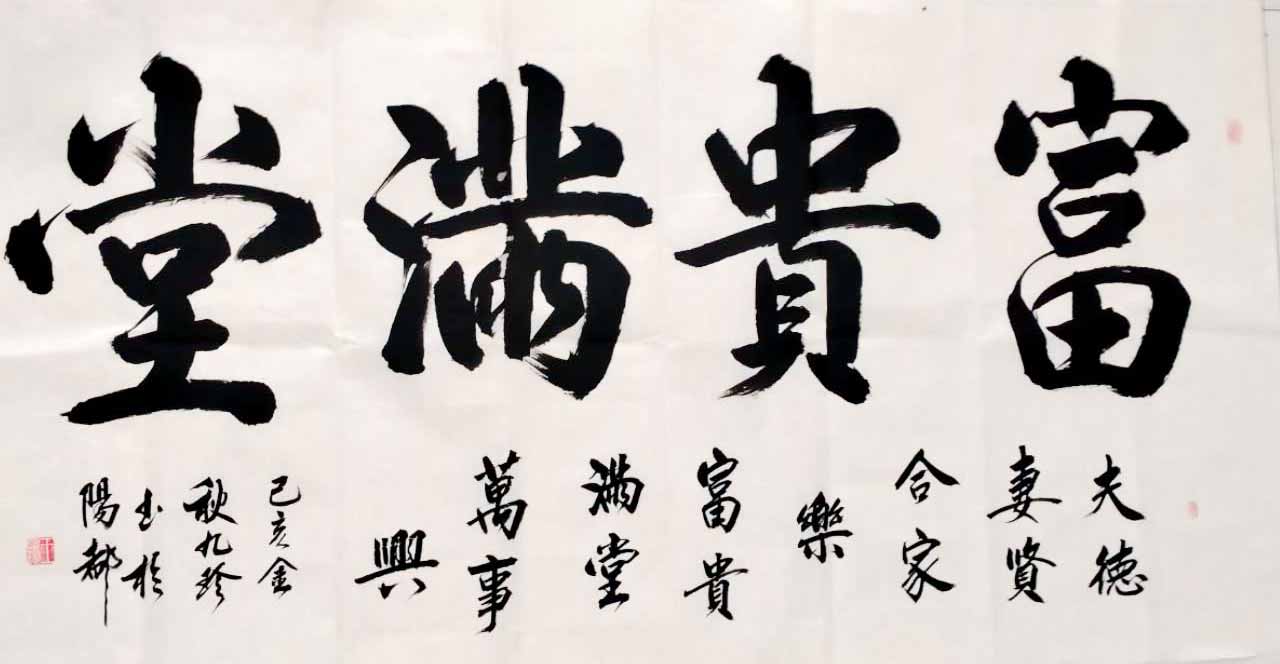 富貴滿堂
夫德
妻賢
合家
樂
富貴
滿堂
萬事
興
己亥金
秋九珍
书於
陽都